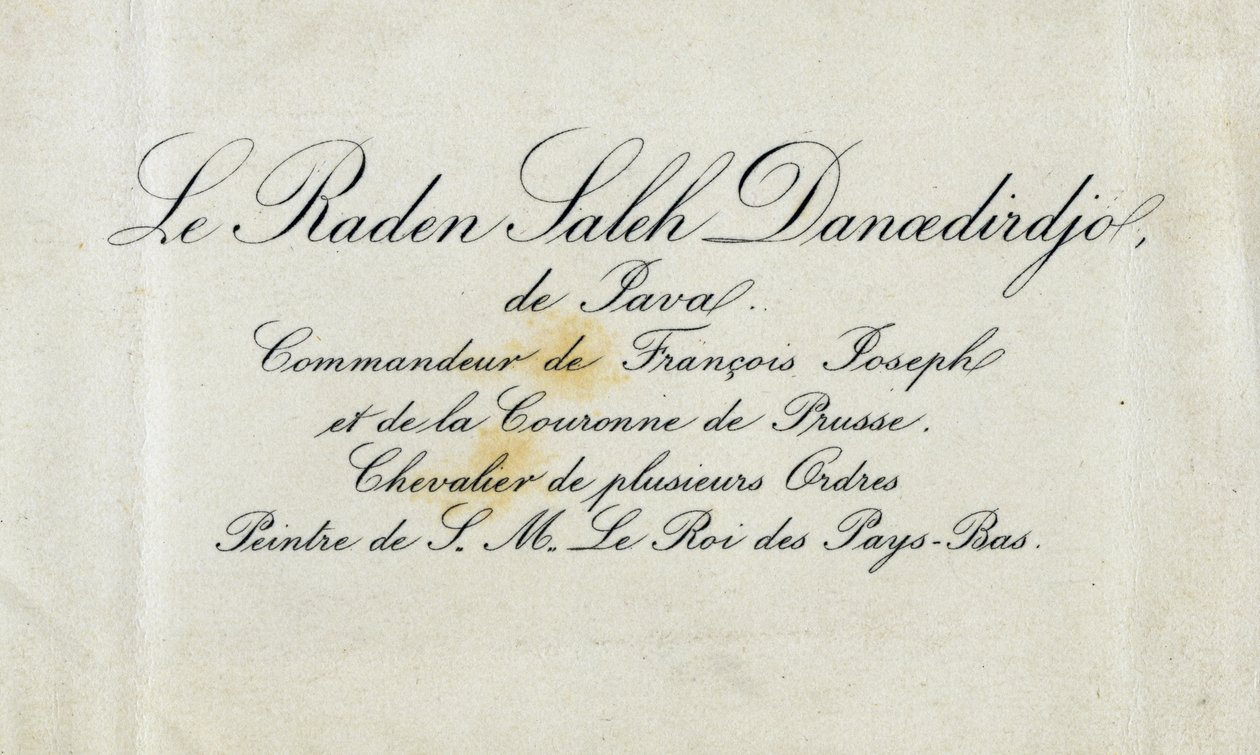 Le Raden Saleh Danœdirdjo,
de Java.
Commandeur de François Joseph
et de la Couronne de Prusse.
Chevalier de plusieurs Ordres
Peintre de S. M. Le Roi des Pays-Bas.